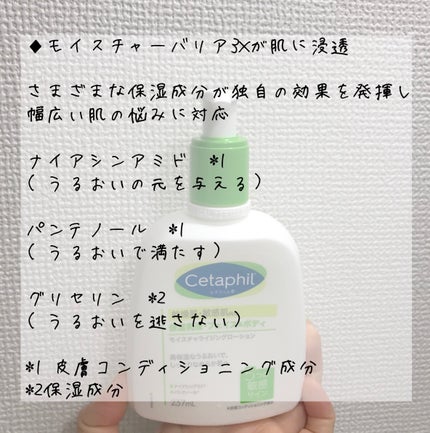 ◆モイスチャーバリア3Xが肌に浸透
さまざまな保湿成分が独自の効果を発揮し
幅広い肌の悩みに対応
ナイアシンアミド *1
(うるおいの元を与える)
パンテノール *1
(うるおいで満たす)
グリセリン *2
(うるおいを逃さない)
*1 皮膚コンディショニング成分
*2保湿成分
Cetaphil
モイスチャライジングローション
237mL